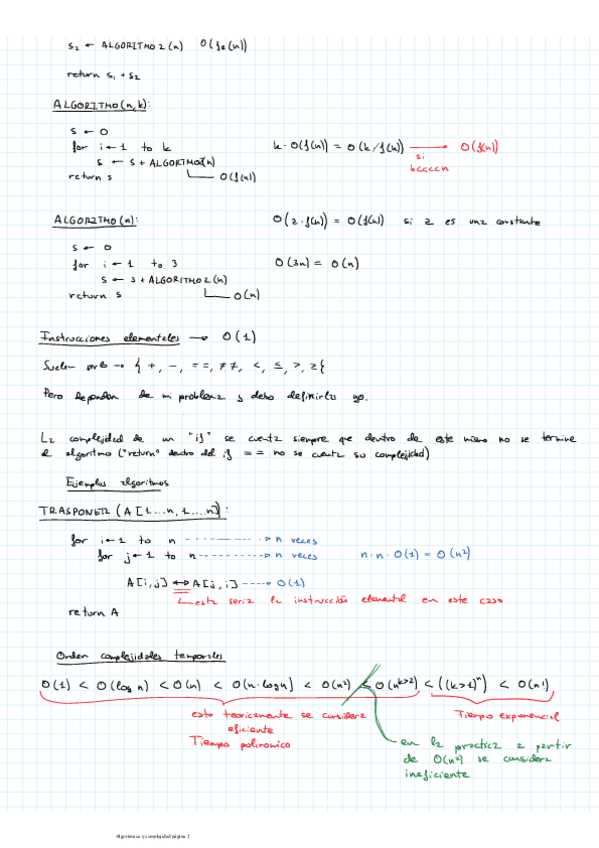 S₂ ← ALGORITMO 2 (n) O(f₂(n))
return S₁ + S₂
ALGORITMO(n,k):
S ← O
for i ← 1 to k k·O(f(n)) = O(k/f(n)) → O(f(n))
S ← S + ALGORITMO2(n) si
return S O(f(n)) k<<<<n
ALGORITMO(n): O(2·f(n)) = O(f(n)) si 2 es una constante
S ← O
for i ← 1 to 3 O(3n) = O(n)
S ← S + ALGORITMO 2 (n)
return S O(n)
Instrucciones elementales → O(1)
Suelen → { +, -, ==, ≠≠, <, ≤, >, ≥ {
Pero dependen de mi problema y debo definirlas yo.
La complejidad de un "if" se cuenta siempre que dentro de este mismo no se termine
el algoritmo ("return" dentro del if == no se cuenta su complejidad)
Ejemplos algoritmos
TRASPONER (A[1...n, 1...n]):
for i ← 1 to n -----> n veces
for j ← 1 to n -----> n veces n·n·O(1) = O(n²)
A[i,j] ↔ A[j,i] ----> O(1)
esta seria la instrucción elemental en este caso
return A
Orden complejidades temporales
O(1) < O(log n) < O(n) < O(n·log n) < O(n²) < O(n^k>2) < ((k>1)ⁿ) < O(n!)
esto teoricamente se considera Tiempo exponencial
eficiente
Tiempo polinomico
en la practica a partir
de O(n²) se considera
ineficiente
Algoritmos y complejidad página 2